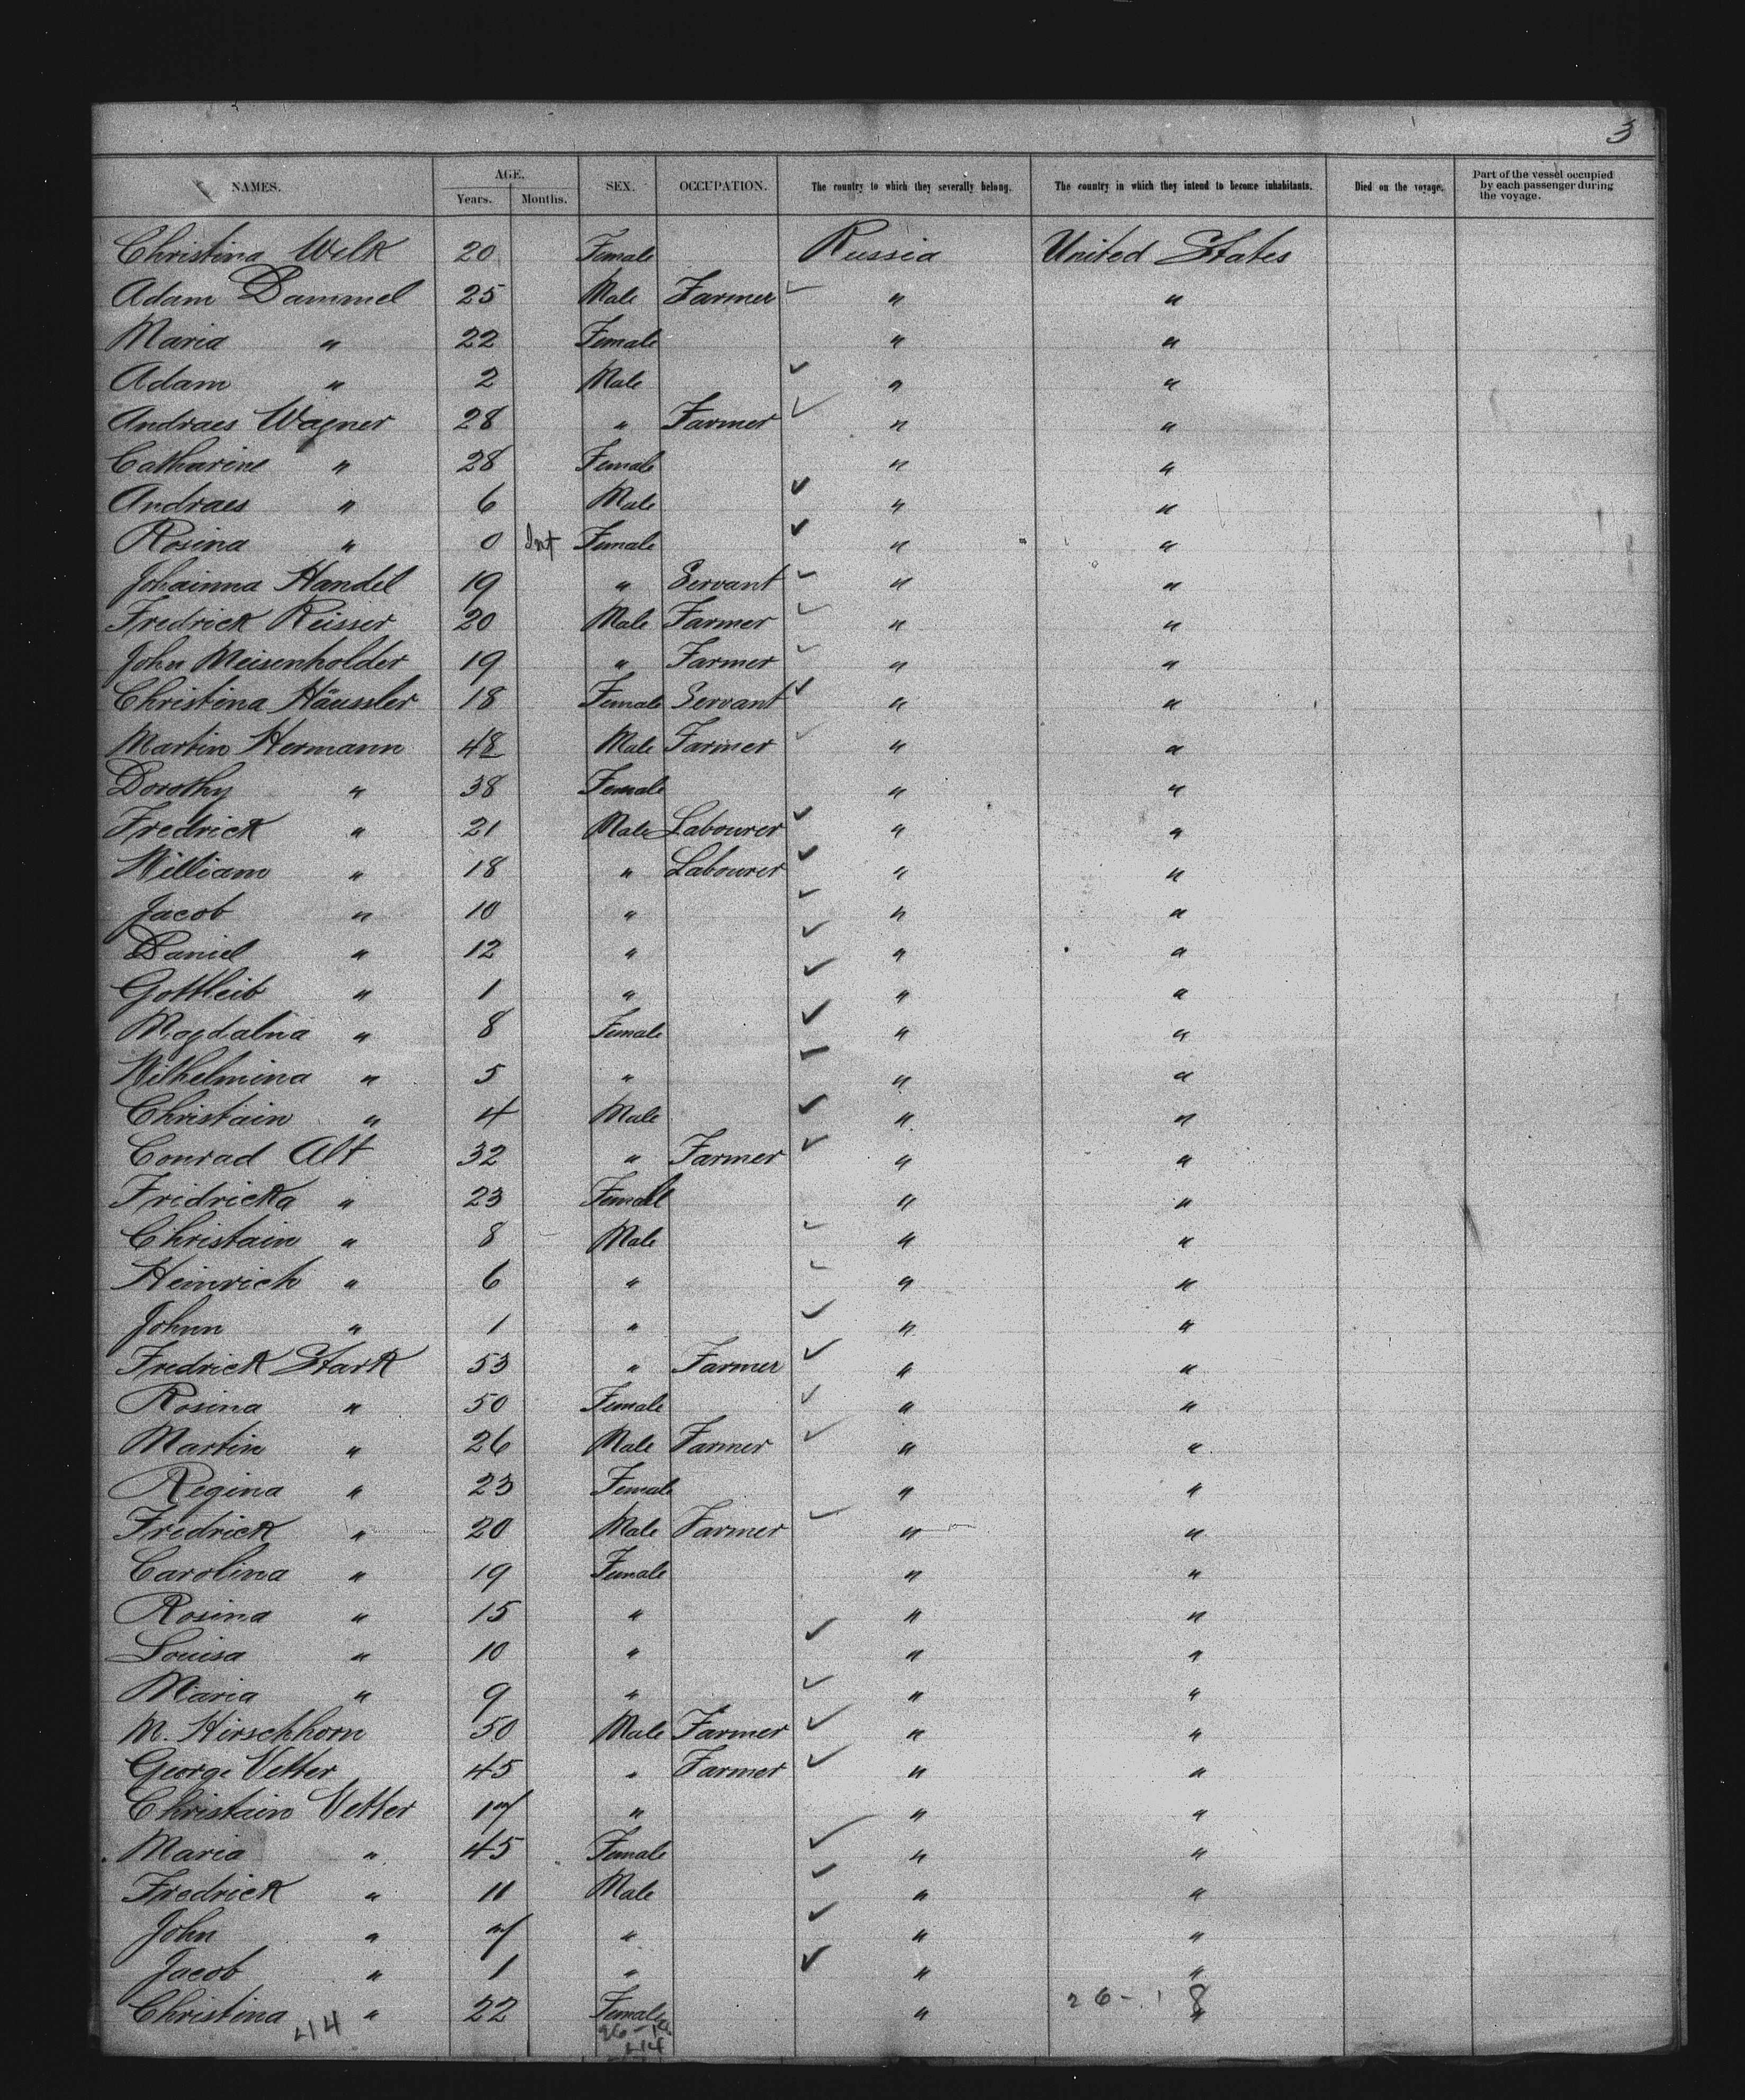 3
NAMES. AGE. SEX. OCCUPATION. The country to which they severally belong. The country in which they intend to become inhabitants. Died on the voyage. Part of the vessel occupied by each passenger during the voyage.
Years. Months.
Christina Welk 20 Female Russia United States
Adam Dammel 25 Male Farmer " "
Maria " 22 Female " "
Adam " 2 Male " "
Andraes Wagner 28 " Farmer " "
Catharine " 28 Female " "
Andraes " 6 Male " "
Rosina " 0 Inf Female " "
Johainna Handel 19 " Servant " "
Fredrick Reisser 20 Male Farmer " "
John Meisenholder 19 " Farmer " "
Christina Häussler 18 Female Servant " "
Martin Hermann 48 Male Farmer " "
Dorothy " 38 Female " "
Fredrick " 21 Male Labourer " "
William " 18 " Labourer " "
Jacob " 10 " " "
Daniel " 12 " " "
Gottleib " 1 " " "
Magdalna " 8 Female " "
Wilhelmina " 5 " " "
Christain " 4 Male " "
Conrad Alt 32 " Farmer " "
Fridricka " 23 Female " "
Christain " 8 Male " "
Heinrich " 6 " " "
Johnn " 1 " " "
Fredrick Stark 53 " Farmer " "
Rosina " 50 Female " "
Martin " 26 Male Farmer " "
Regina " 23 Female " "
Fredrick " 20 Male Farmer " "
Carolina " 19 Female " "
Rosina " 15 " " "
Louisa " 10 " " "
Maria " 9 " " "
M. Hirschhorn 50 Male Farmer " "
George Vetter 45 " Farmer " "
Christain Vetter 17 " " "
Maria " 45 Female " "
Fredrick " 11 Male " "
John " 7 " " "
Jacob " 1 " " "
Christina " 22 Female " "
26-18
414 26-18
414